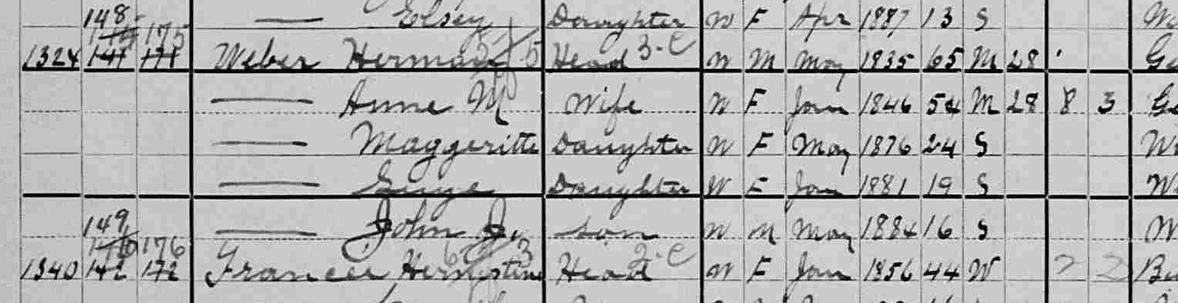 148
— Elsey Daughter W F Apr 1887 13 S
175
1324 141 171 Weber Herman 5 Head 3-C W M May 1835 65 M 28 Ge
— Anne M Wife W F Jan 1846 54 M 28 8 3 Ge
— Maggeritte Daughter W F May 1876 24 S Wi
— Daughter W F Jan 1881 19 S W
149
— John J. son W M May 1884 16 S W
176
1340 142 172 Francee Hernestine 3 Head 2-C W F Jan 1856 44 W 2 2